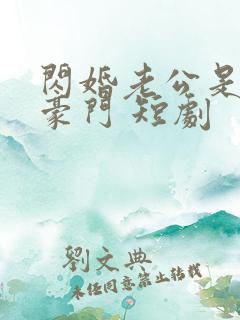 閃婚老公是
豪門 短劇
劉文典
未經同意禁止轉載